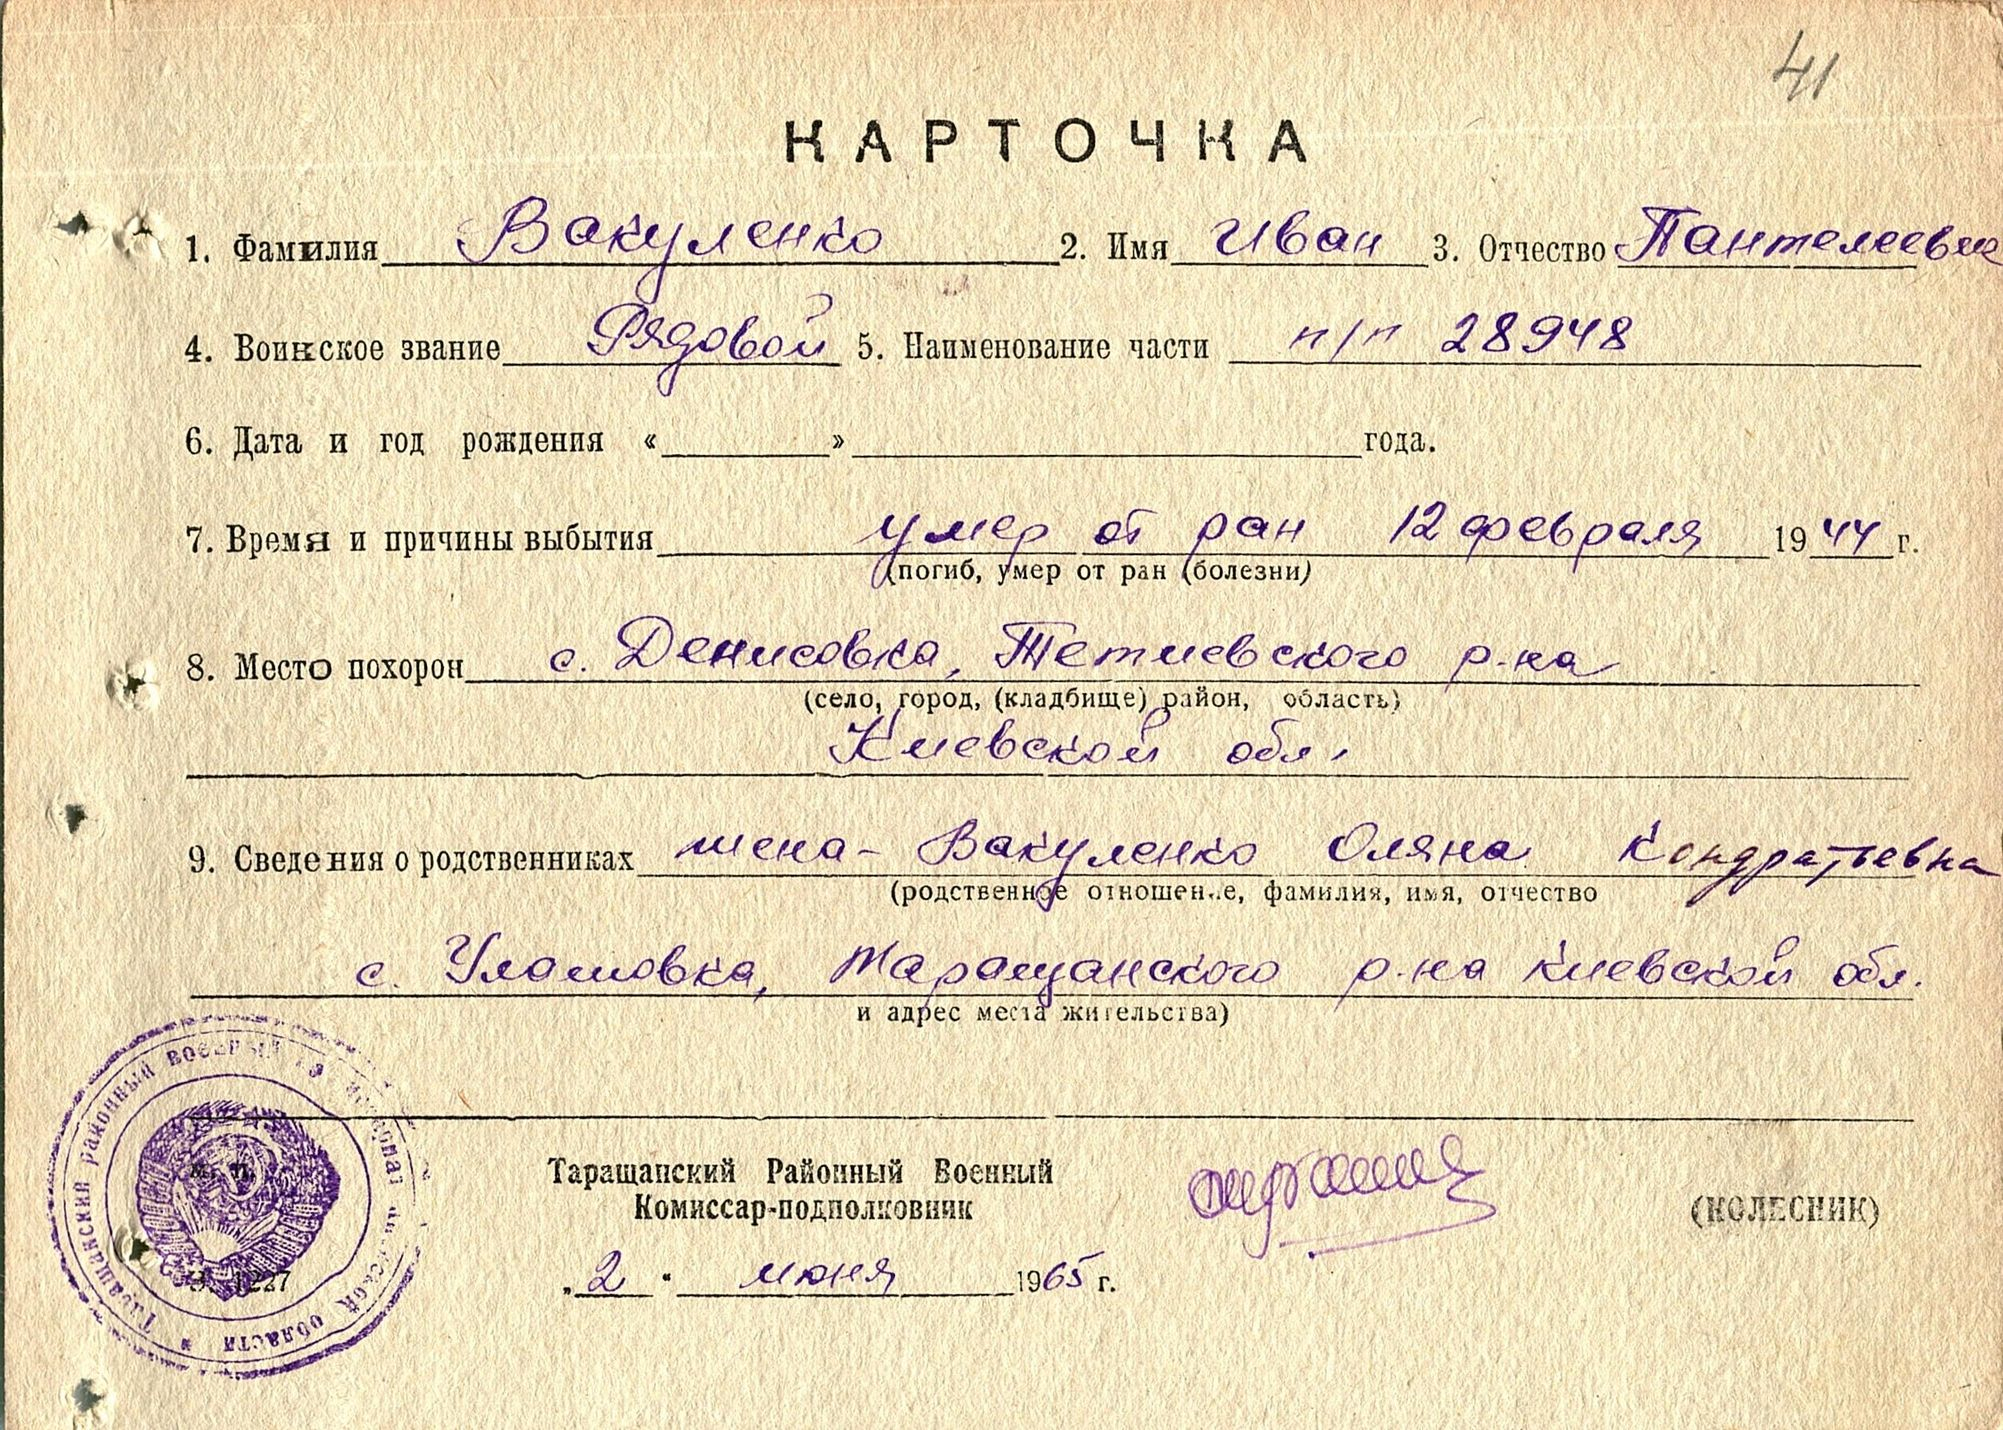 41
КАРТОЧКА
1. Фамилия Вакуленко 2. Имя Иван 3. Отчество Пантелеевич
4. Воинское звание Рядовой 5. Наименование части п/п 28948
6. Дата и год рождения « » года.
7. Время и причины выбытия умер от ран 12 февраля 1944 г.
(погиб, умер от ран (болезни)
8. Место похорон с. Денисовка, Тетиевского р-на
(село, город, (кладбище) район, область)
Киевской обл.
9. Сведения о родственниках жена - Вакуленко Оляна Кондратьевна
(родственное отношение, фамилия, имя, отчество
с. Улашовка, Таращанского р-на Киевской обл.
и адрес места жительства)
Таращанский районный военный комиссариат Киевской области *
м. п.
Таращанский Районный Военный
Комиссар-подполковник
(КОЛЕСНИК)
„2" июня 1965 г.
З. 1227